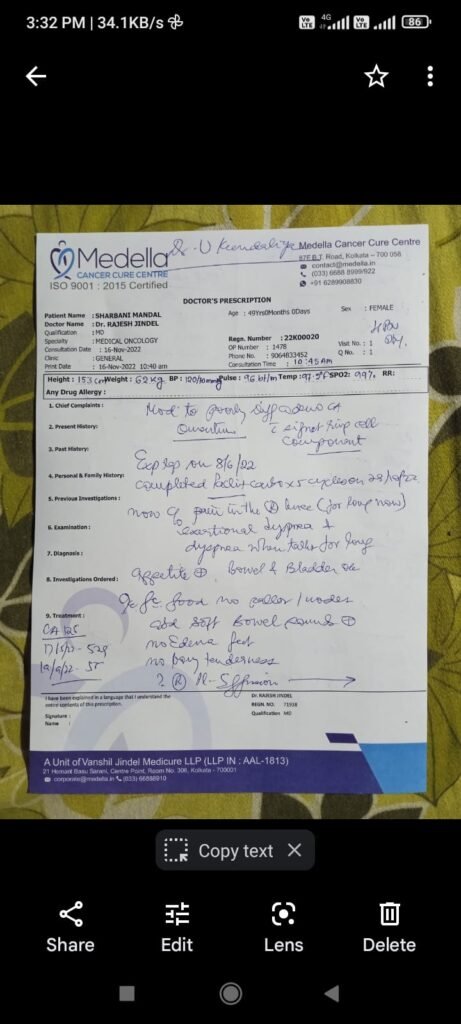 3:32 PM | 34.1KB/s
4G
86
Dr. U Kundaliya
Medella
CANCER CURE CENTRE
ISO 9001 : 2015 Certified
Medella Cancer Cure Centre
87E B.T. Road, Kolkata – 700 058
contact@medella.in
(033) 6688 8999/922
+91 6289908830
DOCTOR'S PRESCRIPTION
Patient Name : SHARBANI MANDAL
Age : 49Yrs0Months 0Days
Sex : FEMALE
Doctor Name : Dr. RAJESH JINDEL
Qualification : MD
Specialty : MEDICAL ONCOLOGY
Regn. Number : 22K00020
Consultation Date : 16-Nov-2022
OP Number : 1478
Visit No. : 1
Clinic : GENERAL
Phone No. : 9064833452
Q No. : 1
Print Date : 16-Nov-2022 10:40 am
Consultation Time : 10:45 Am
Height : 153 cm Weight : 62 kg BP : 120/80 mmHg Pulse : 96 bt/m Temp : 97.5°F SPO2 : 99% RR:
Any Drug Allergy :
1. Chief Complaints :
Mod to poorly diff adeno CA
2. Present History :
Omentum c signet ring cell
component
3. Past History :
Exp lap on 8/6/22
4. Personal & Family History :
completed Pacli + carbo x 5 cycles on
5. Previous Investigations :
now c/o pain in the (R) knee (for long now)
6. Examination :
exertional dyspnea +
7. Diagnosis :
dyspnea when talks for long
8. Investigations Ordered :
appetite + bowel & Bladder ok
9. Treatment :
gc fc good no pallor / nodes
CA 125
abd soft Bowel sounds +
no Edema feet
no bony tenderness
? (R) Pl-Effusion
I have been explained in a language that I understand the
entire contents of this prescription.
Signature :
Name :
Dr. RAJESH JINDEL
REGN. NO. 71938
Qualification MD
A Unit of Vanshil Jindel Medicure LLP (LLP IN : AAL-1813)
21 Hemant Basu Sarani, Centre Point, Room No. 306, Kolkata - 700001
corporate@medella.in (033) 66888910
Copy text
Share
Edit
Lens
Delete